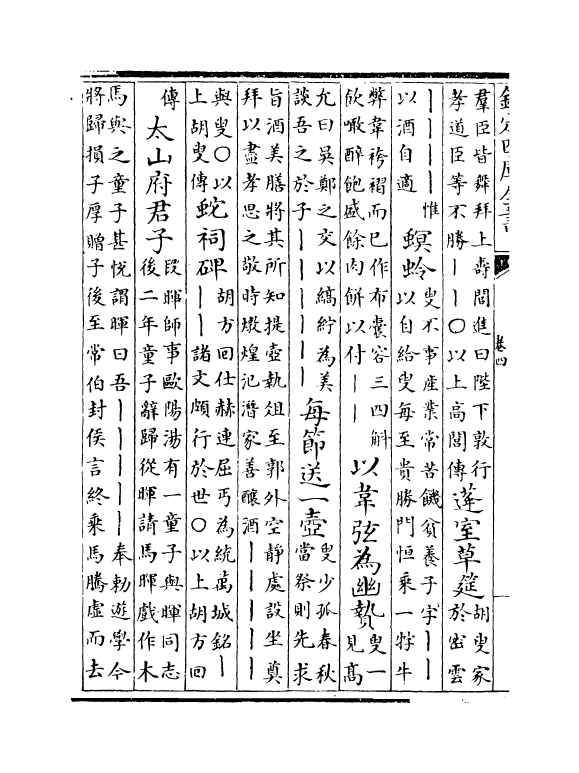 欽定四庫全書
卷四
羣臣皆舞拜上壽閭進曰陛下敦行
孝道臣等不勝丨丨○以上高閭傳
蓬室草筵
胡叟家
於密雲
丨丨丨丨惟
以酒自適
螟蛉
叟不事產業常苦饑貧養子字丨丨
以自給叟每至貴勝門恒乘一牸牛
弊韋袴褶而已作布囊容三四斛
飲噉醉飽盛餘肉餅以付丨丨
以韋弦為幽贄
叟一
見高
允曰吳鄭之交以縞紵為美
談吾之於子丨丨丨丨丨丨
每節送一壺
叟少孤春秋
當祭則先求
旨酒美膳將其所知提壺執俎至郭外空靜處設坐奠
拜以盡孝思之敬時燉煌氾潛家善釀酒丨丨丨丨丨
與叟○以
上胡叟傳
蛇祠碑
胡方回仕赫連屈丐為統萬城銘丨
丨丨諸文頗行於世○以上胡方回
傳
太山府君子
段暉師事歐陽湯有一童子與暉同志
後二年童子辭歸從暉請馬暉戲作木
馬與之童子甚悅謂暉曰吾丨丨丨丨丨奉勅遊學今
將歸損子厚贈子後至常伯封侯言終乘馬騰虛而去